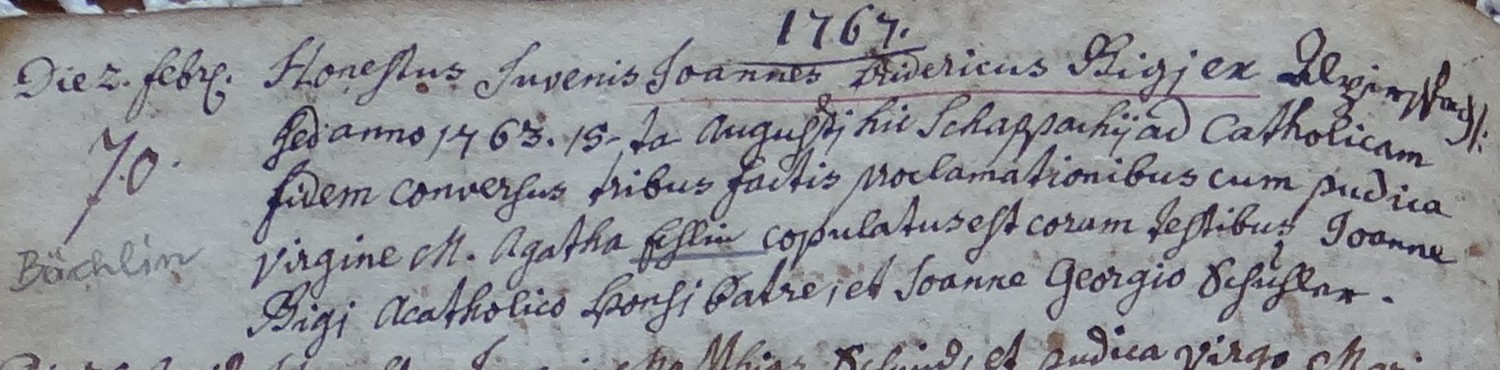 1767.
Die 2. febr. Honestus Juvenis Joannes Fridericus Bigj ex
sed anno 1763. 15-ta Augustj hic Schappachij ad Catholicam
fidem conversus tribus factis proclamationibus cum pudica
70. virgine M. Agatha copulatus est coram testibus Joanne
Bächlin
Bigj Acatholico Sponsj Patre, et Joanne Georgio Schuhler.
et pudica virgo Mari